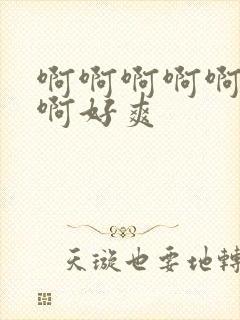 啊啊啊啊啊
啊好爽
天璇也要地轉